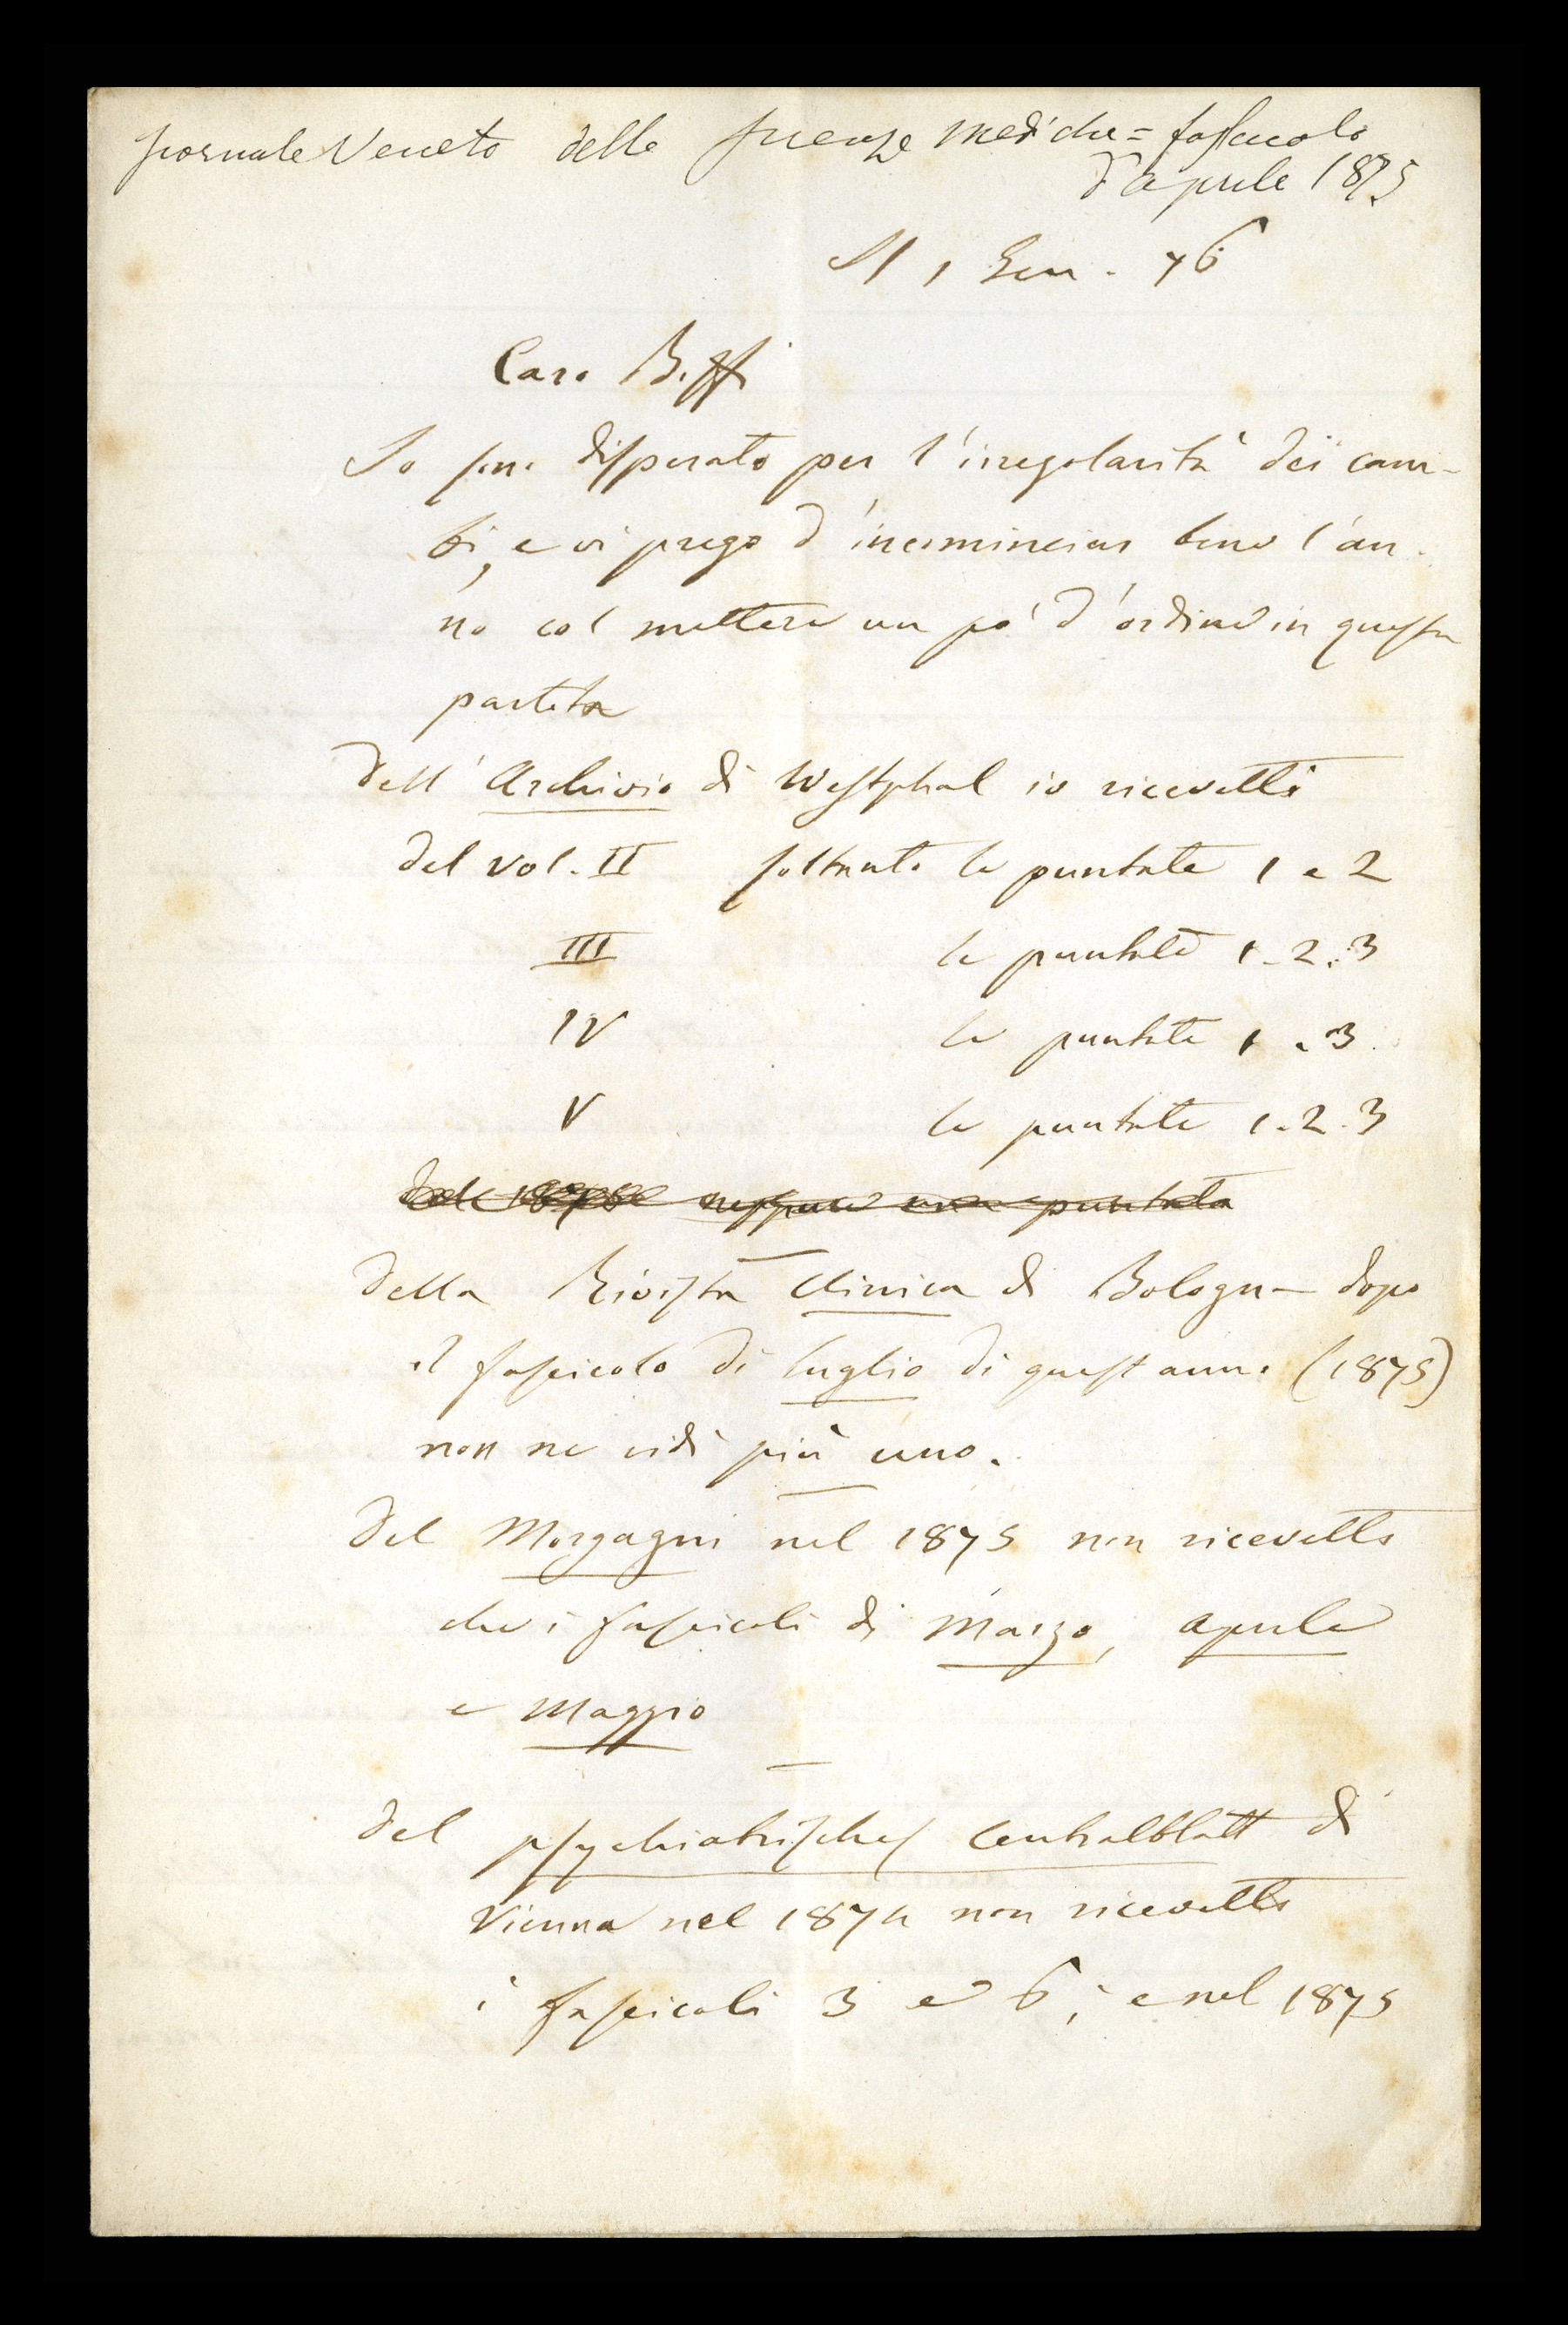 giornale Veneto delle scienze mediche = fascicolo
d'aprile 1875
1 Gen. 76
Caro Biffi
Io sono disperato per l'irregolarità dei cam-
bi, e vi prego d'incominciar bene l'an-
no col mettere un po' d'ordine in questa
partita
Dell'Archivio di Westphal io ricevetti
del vol. II soltanto le puntate 1 e 2
III le puntate 1-2.3
IV le puntate 1 e 3
V le puntate 1-2.3
del neppure una puntata
Della Rivista clinica di Bologna dopo
il fascicolo di luglio di quest'anno (1875)
non ne vidi più uno.
Del Morgagni nel 1875 non ricevetti
che i fascicoli di Marzo, aprile
e Maggio
Del psychiatrisches Centralblatt di
Vienna nel 1874 non ricevetti
i fascicoli 3 e 6; e nel 1875